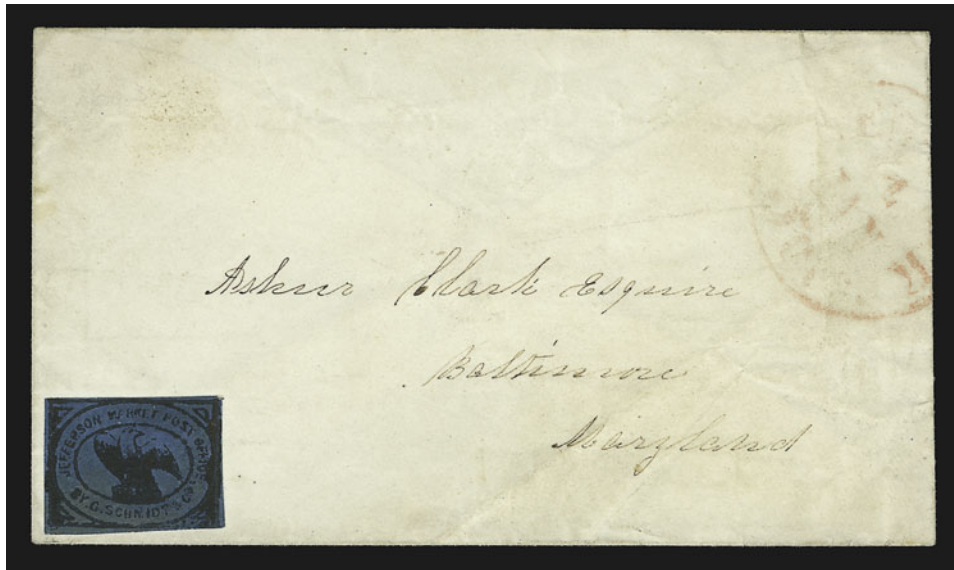 Askur Clark Esquire
Baltimore
Maryland
JEFFERSON MARKET POST OFFICE
BY G. SCHMIDT & Co.